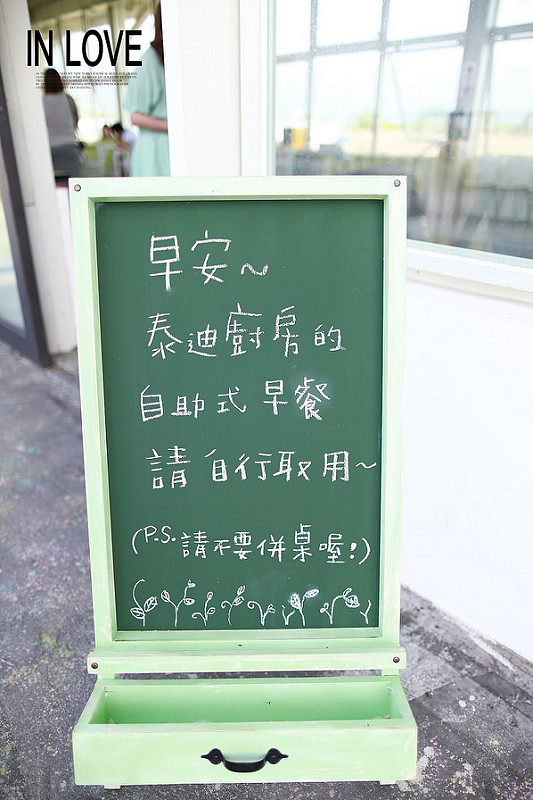 IN LOVE
早安~
泰迪廚房的
自助式早餐
請自行取用~
(P.S. 請不要併桌喔!)